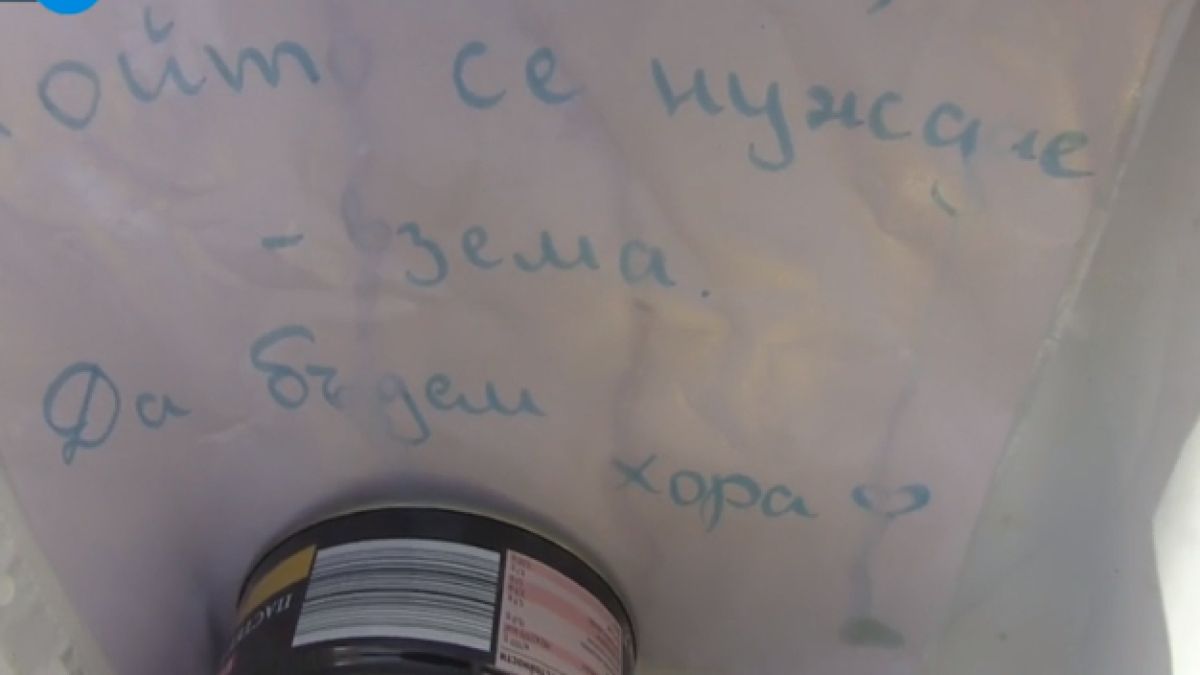 който се нуждае
- взема.
Да бъдем
хора